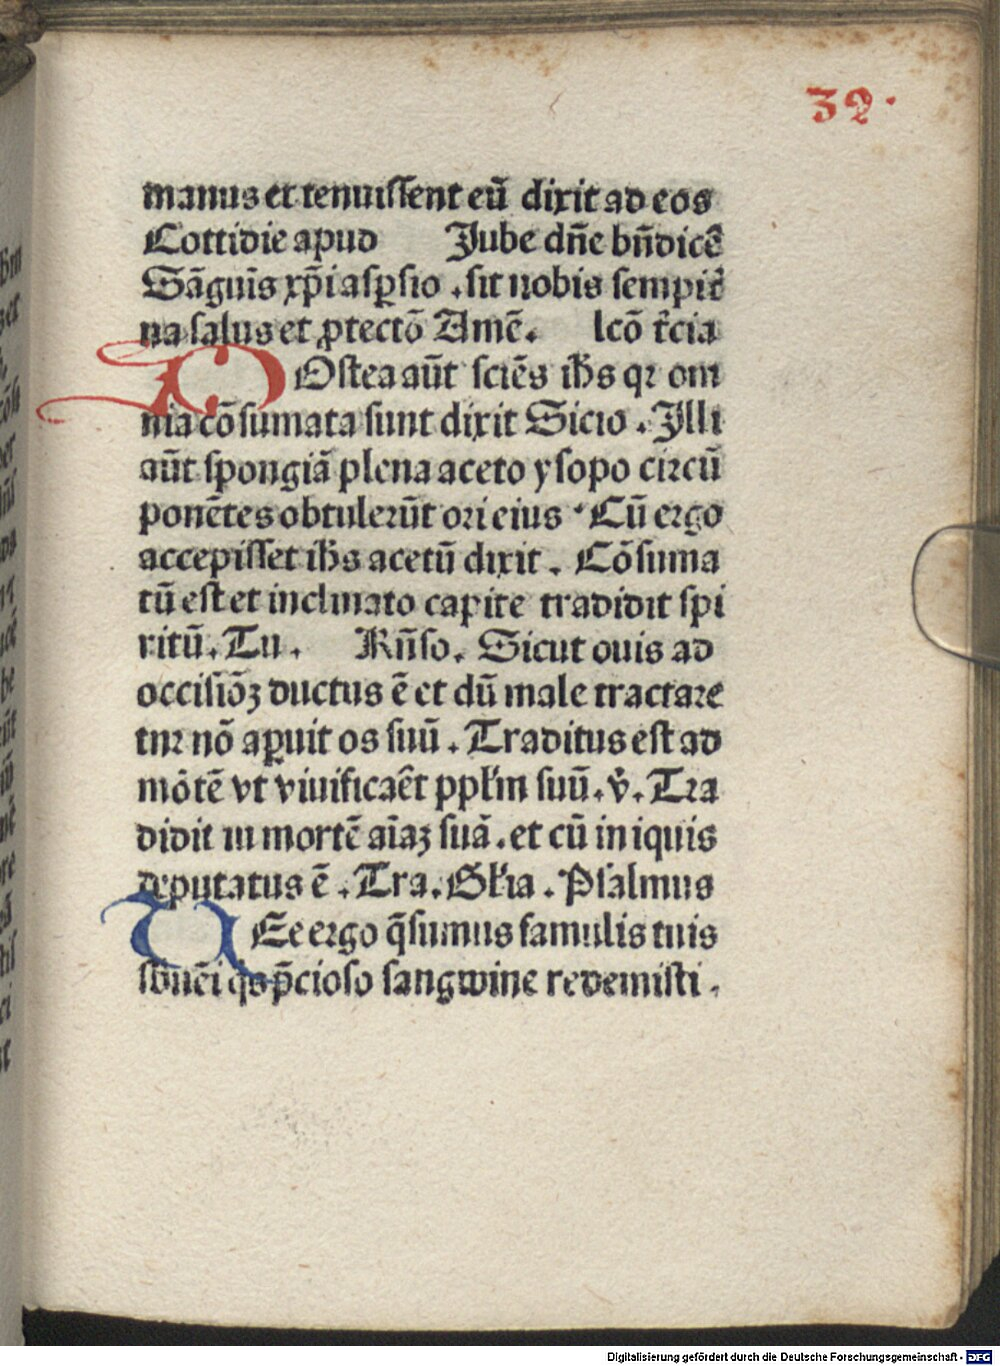 32.
manus et tenuissent eū dixit ad eos
Cottidie apud Jube dn̄e bn̄dicē
Sāguīs xp̄i aspsio . sit nobis sempit̄
na salus et ꝓtectō Amē. lcō t̄cia
POstea aūt sciēs ih̄s qꝛ om
nia cōsumata sunt dixit Sicio . Illi
aūt spongiā plena aceto ysopo circū
ponētes obtulerūt ori eius . Cū ergo
accepisset ih̄s acetū dixit . Cōsuma
tū est et inclinato capite tradidit spi
ritū. Tu . Rn̄so. Sicut ouis ad
occisiōꝫ ductus ē et dū male tractare
tur nō apꝑuit os suū . Traditus est ad
mōtē vt viuificaēt ppl̄m suū. v̄. Tra
didit in mortē aīaꝫ suā . et cū iniquis
deputatus ē . Tra. Gl̄ia . Psalmus
TEe ergo q̄sumus famulis tuis
sb̄uēi qͦs p̄cioso sangwine redemisti .
Digitalisierung gefördert durch die Deutsche Forschungsgemeinschaft - DFG